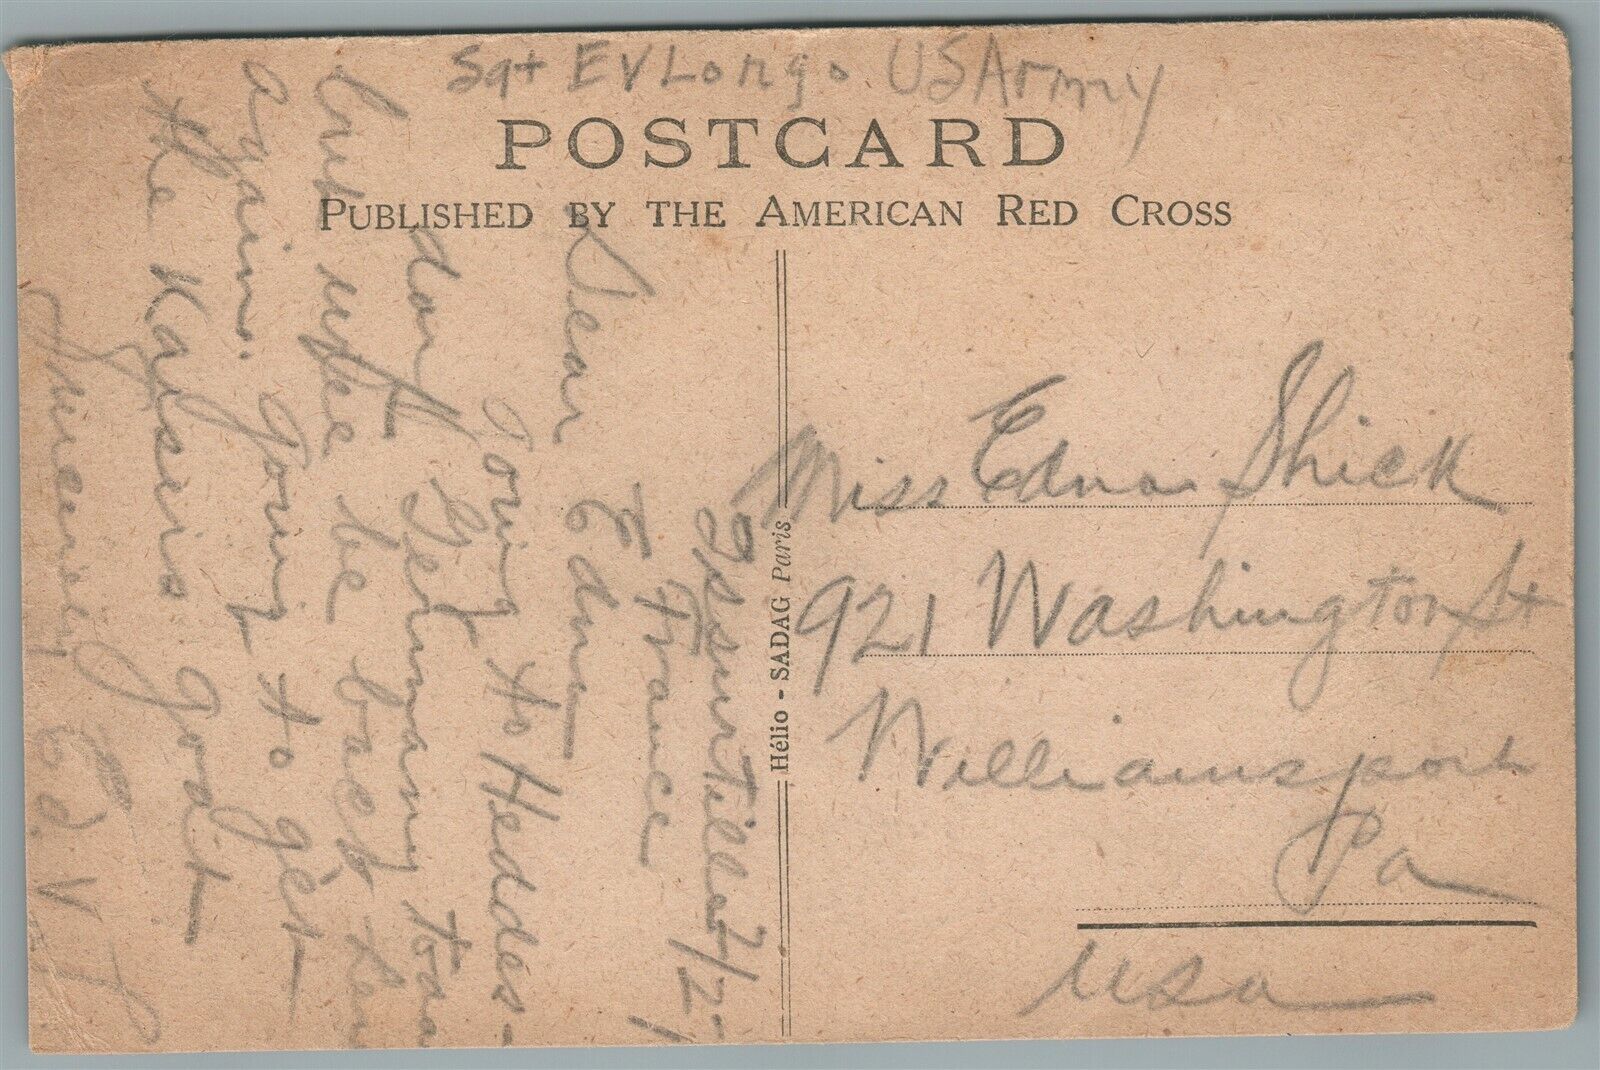 Sgt EV Longo US Army
POSTCARD
PUBLISHED BY THE AMERICAN RED CROSS
Is sur Tille 2/27
France
Dear Edna
Going to Heddes-
dorf Germany toda
but will be back her
again. Going to get
the Kaisers goat
Sincerely E.V.L
Hélio - SADAG Paris
Miss Edna Shick
921 Washington St
Williamsport
Pa
USA